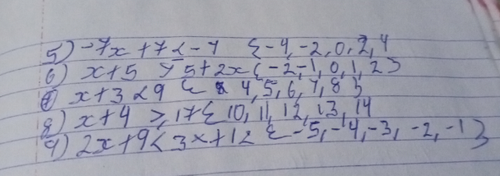 5) -7x + 7 < -7 {-4, -2, 0, 2, 4
6) x + 5 > 5 + 2x {-2, -1, 0, 1, 2}
7) x + 3 < 9 { 4, 5, 6, 7, 8 }
8) x + 4 ≥ 17 { 10, 11, 12, 13, 14
9) 2x + 9 < 3x + 12 { -5, -4, -3, -2, -1 }